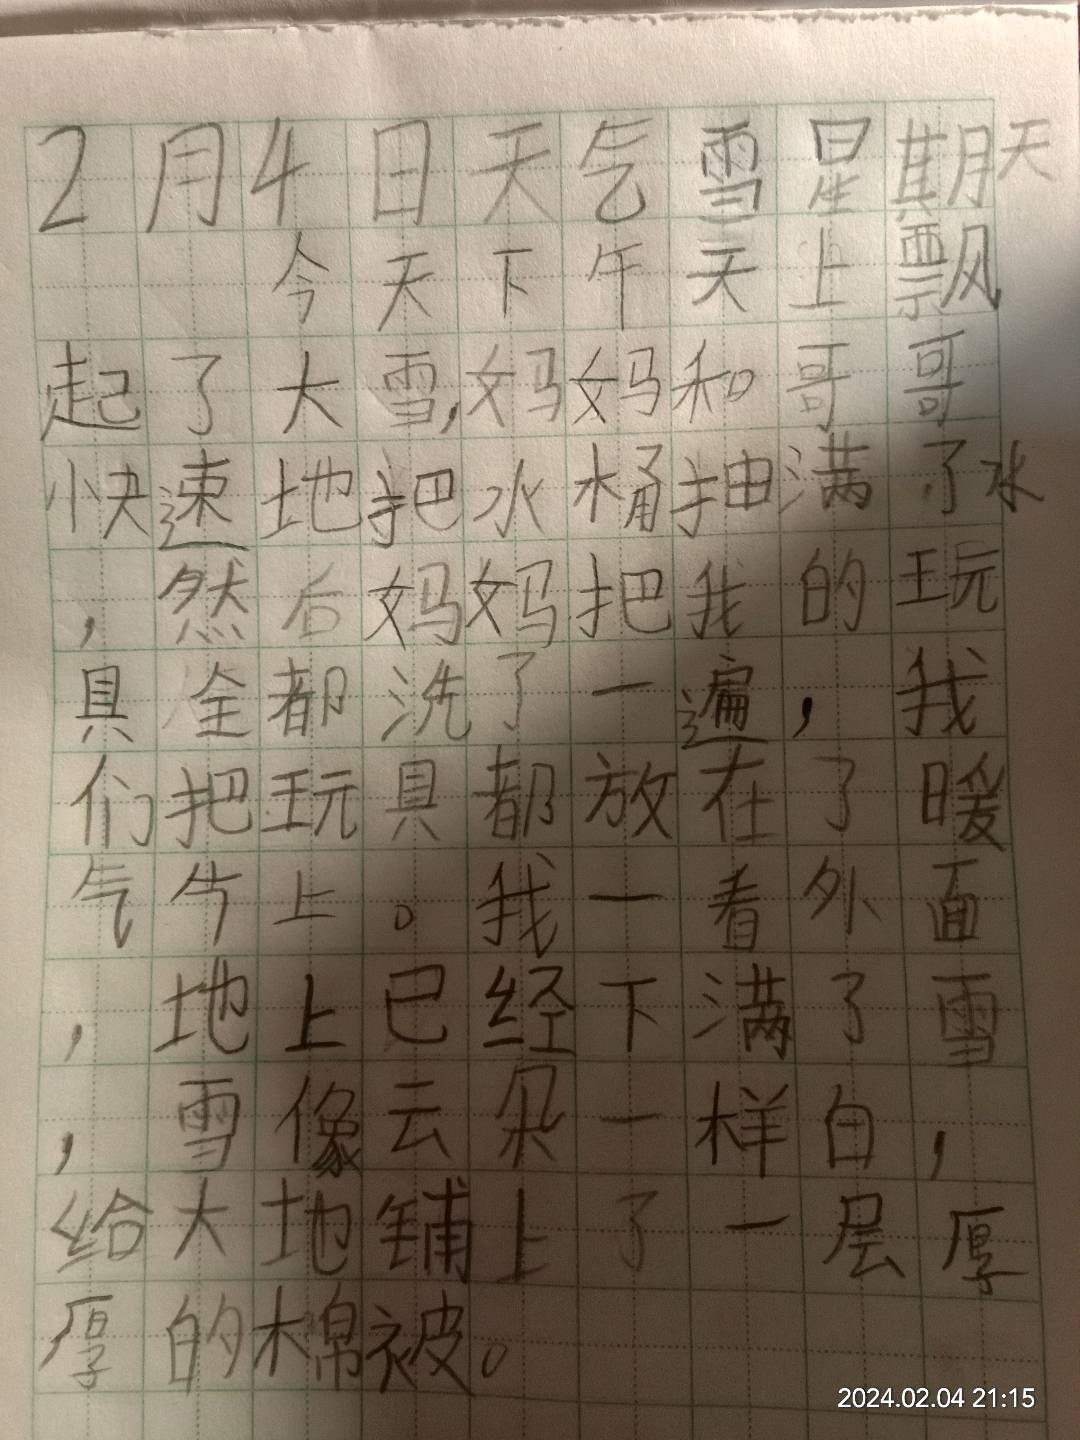 2月4日天气雪星期天
今天下午天上飘
起了大雪,妈妈和哥哥
快速地把水桶抽满了水
，然后妈妈把我的玩
具全都洗了一遍，我
们把玩具都放在了暖
气片上。我一看外面
，地上已经下满了雪
，雪像云朵一样白，
给大地铺上了一层厚
厚的棉被。
2024.02.04 21:15